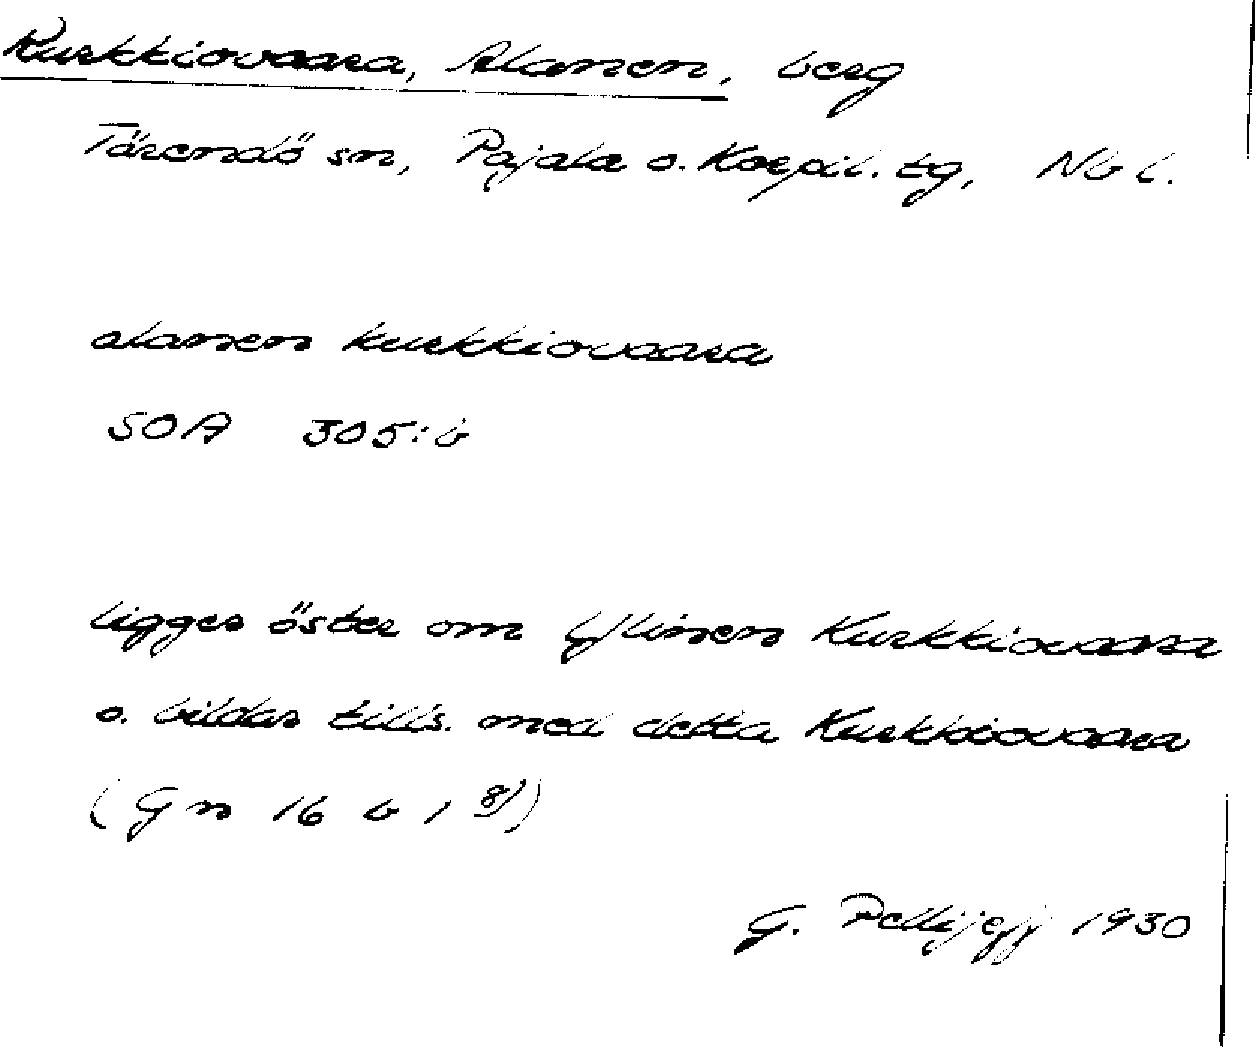 Kurkkiovaara, Alanen, berg
Tärendö sn, Pajala o. Korpil. tg, Nb l.
alanen kurkkiovaara
SOA 305:b
ligger öster om Ylinen Kurkkiovaara
o. bildar tills. med detta Kurkkiovaara
(Gn 16 b 1 8/)
G. Pellijeff 1930